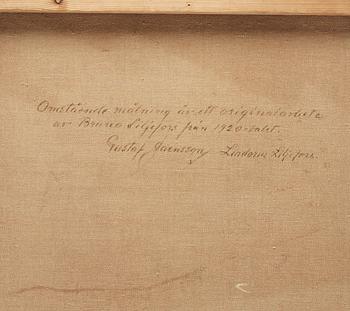 Omstående målning är ett originalarbete
av Bruno Liljefors från 1920-talet.
Gustaf Jaensson Lindorm Liljefors.